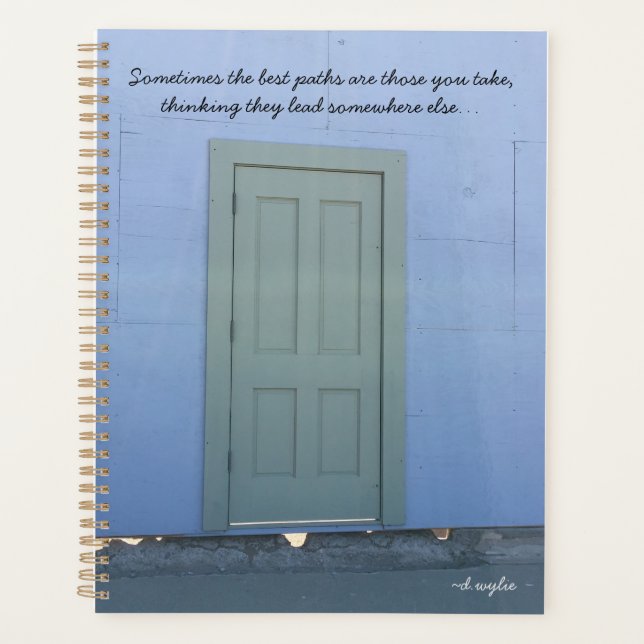 Sometimes the best paths are those you take,
thinking they lead somewhere else...
~d.wylie -